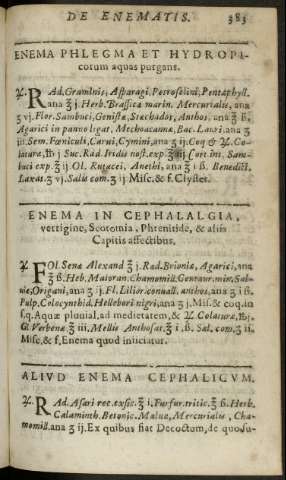 DE ENEMATIS. 383
ENEMA PHLEGMA ET HYDROPI-
corum aquas purgans.
℞. RAd. Graminis, Asparagi, Petroselini, Pentaphyll.
ana ʒ j. Herb. Brassicæ marin. Mercurialis, ana
ʒ vj. Flor. Sambuci, Genistæ, Stechados, Anthos, ana ʒ ß.
Agarici in panno ligat. Mechoacannæ, Bac. Lauri, ana ʒ
iij. Sem. Fœniculi, Carui, Cymini, ana ʒ ij. Coq & ℞. Co-
laturæ, ℔ j Suc. Rad. Iridis nost. exp. ℥ ij Cort int. Sam-
buci exp. ℥ ij Ol. Rutacei, Anethi, ana ℥ i ß Benedict.
Laxat. ʒ vj. Salis com. ʒ ij Misc. & f. Clyster.
ENEMA IN CEPHALALGIA,
vertigine, Scotomia, Phrenitide, & aliis
Capitis affectibus.
℞. FOl. Senæ Alexand ℥ j. Rad. Brioniæ, Agarici, ana
℥ ß. Herb. Maioran. Chamomill. Centaur. min. Sal-
uiæ, Origani, ana ʒ ij. Fl. Lilior. conuall. anthos, ana ʒ i ß.
Pulp. Colocynthid. Hellebori nigri, ana ʒ j. Mis. & coq. in
s. q. Aquæ pluuial. ad medietatem, & ℞ Colaturæ, ℔ j.
Ol. Verbenæ ℥ iij. Mellis Anthosat. ℥ i ß. Sal. com. ʒ ij.
Misc. & f. Enema quod iniiciatur.
ALIVD ENEMA CEPHALICVM.
℞. RAd. Asari rec. exsic. ℥ i. Furfur. tritic. ℥ ß. Herb.
Calaminth. Betonic. Maluæ, Mercurialis, Cha-
momill. ana ʒ ij. Ex quibus fiat Decoctum, de quo su-